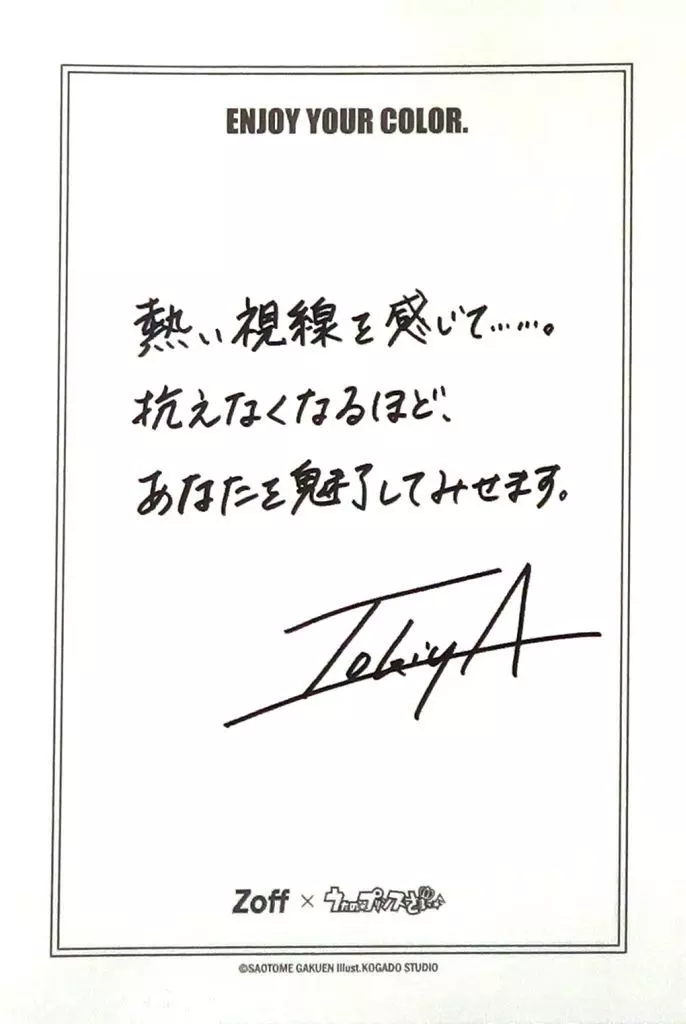 ENJOY YOUR COLOR.
熱い視線を感じて……。
抗えなくなるほど、
あなたを魅了してみせます。
TokiyA
Zoff × うたの☆プリンスさまっ♪
©SAOTOME GAKUEN Illust.KOGADO STUDIO